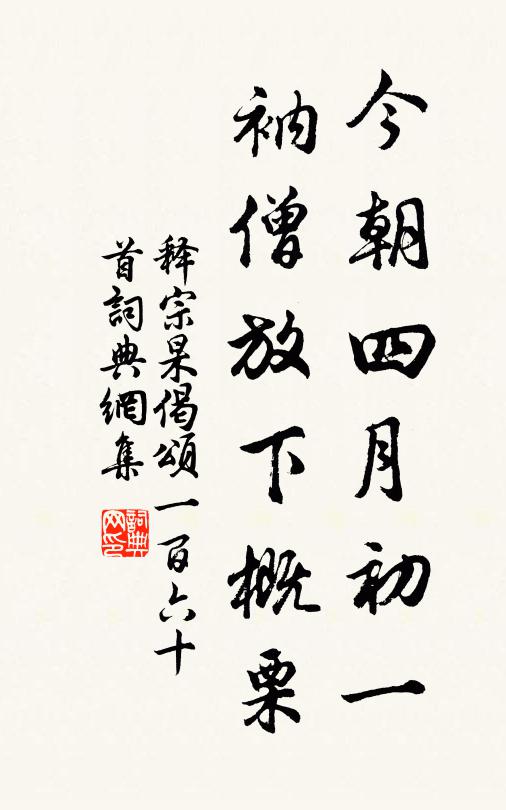 今朝四月初一
衲僧放下概栗
释宗杲偈頌一百六十
首詞典網集
詞典
网印